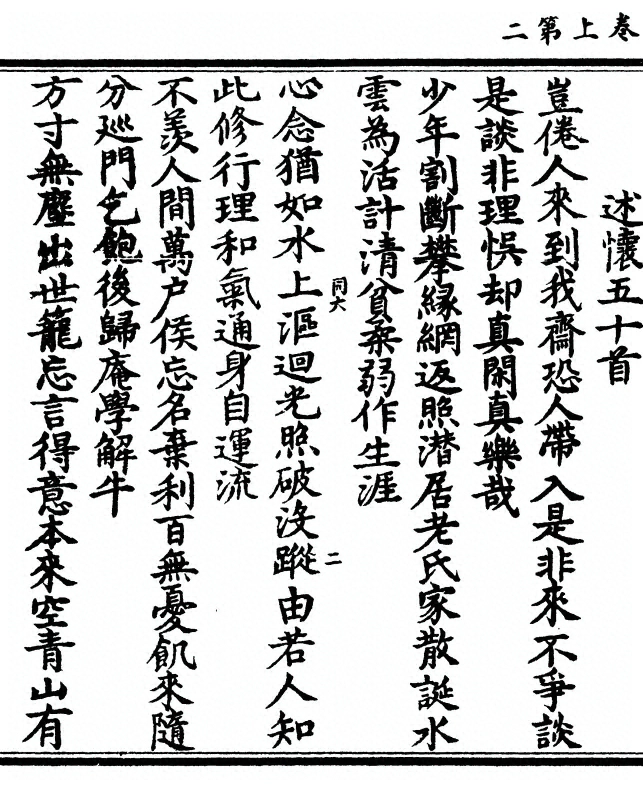 卷上第二
述懷五十首
豈倦人來到我齋恐人帶入是非來不爭談
是談非理悞却真閑真樂哉
少年割斷攀緣網返照潛居老氏家散誕水
雲為活計清貧柔弱作生涯
心念猶如水上漚迴光照破沒蹤由若人知
同大
二
此修行理和氣通身自運流
不羨人間萬户侯忘名棄利百無憂飢來隨
分廵門乞飽後歸庵學解牛
方寸無塵出世籠忘言得意本來空青山有